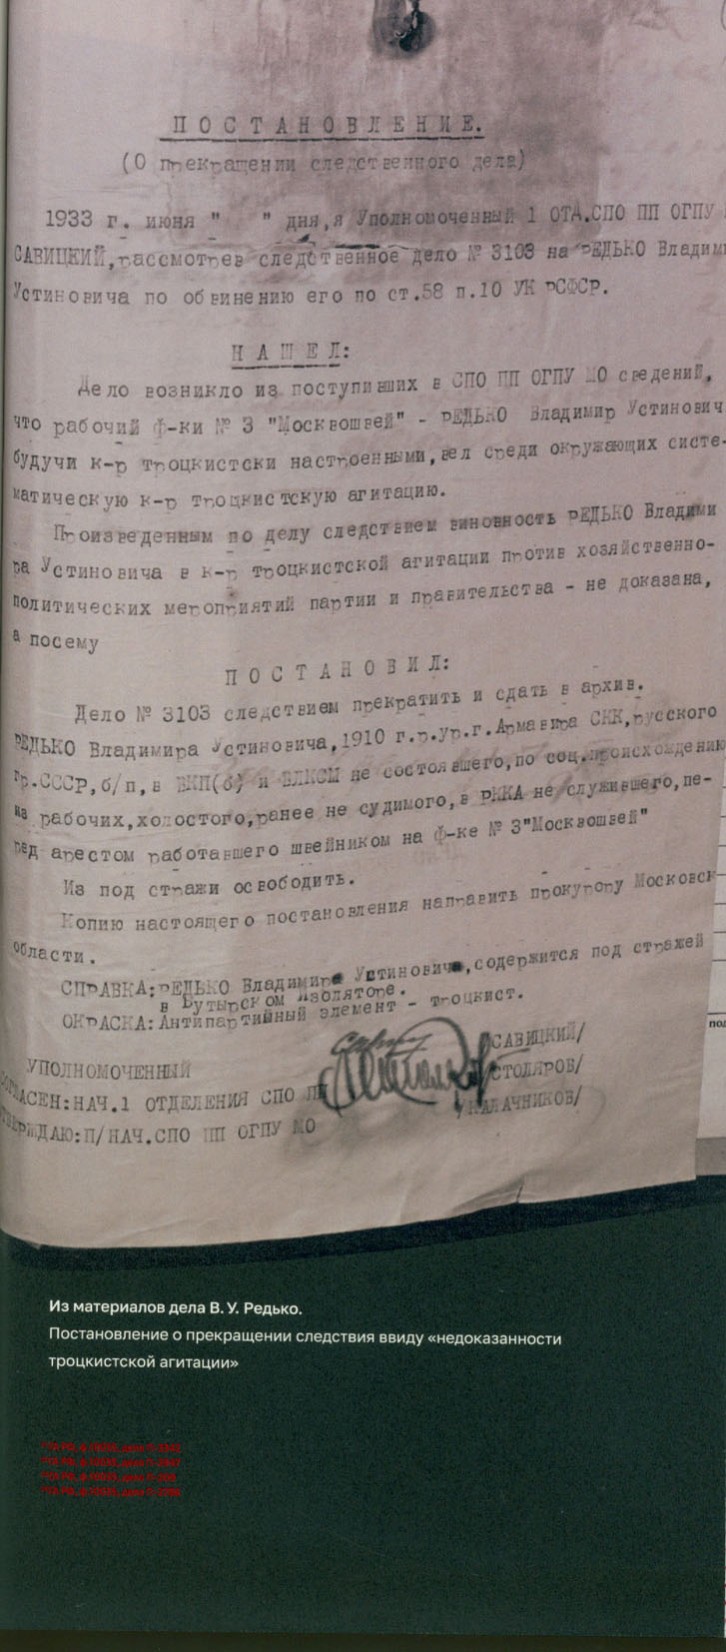 ПОСТАНОВЛЕНИЕ.
(О прекращении следственного дела)
1933 г. июня " " дня, я Уполномоченный 1 ОТД.СПО ПП ОГПУ
САВИЦКИЙ, рассмотрев следственное дело № 3103 на РЕДЬКО Владими
Устиновича по обвинению его по ст.58 п.10 УК РСФСР.
НАШЕЛ:
Дело возникло из поступивших в СПО ПП ОГПУ МО сведений,
что рабочий ф-ки № 3 "Москвошвей" - РЕДЬКО Владимир Устинович
будучи к-р троцкистски настроенными, вел среди окружающих систе-
матическую к-р троцкистскую агитацию.
Произведенным по делу следствием виновность РЕДЬКО Владими
ра Устиновича в к-р троцкистской агитации против хозяйственно-
политических мероприятий партии и правительства - не доказана,
а посему
ПОСТАНОВИЛ:
Дело № 3103 следствием прекратить и сдать в архив.
РЕДЬКО Владимира Устиновича, 1910 г.р.ур.г.Армавира СКК, русского
гр.СССР, б/п, в ВКП(б) и ВЛКСМ не состоявшего, по соц.происхождению
из рабочих, холостого, ранее не судимого, в РККА не служившего, пе-
ред арестом работавшего швейником на ф-ке № 3"Москвошвей"
Из под стражи освободить.
Копию настоящего постановления направить прокурору Московск
области.
СПРАВКА: РЕДЬКО Владимир Устинович, содержится под стражей
в Бутырском изоляторе.
ОКРАСКА: Антипартийный элемент - троцкист.
УПОЛНОМОЧЕННЫЙ САВИЦКИЙ/
СОГЛАСЕН: НАЧ.1 ОТДЕЛЕНИЯ СПО ПП СТОЛЯРОВ/
УТВЕРЖДАЮ: П/НАЧ.СПО ПП ОГПУ МО /КАЛАЧНИКОВ/
Из материалов дела В. У. Редько.
Постановление о прекращении следствия ввиду «недоказанности
троцкистской агитации»